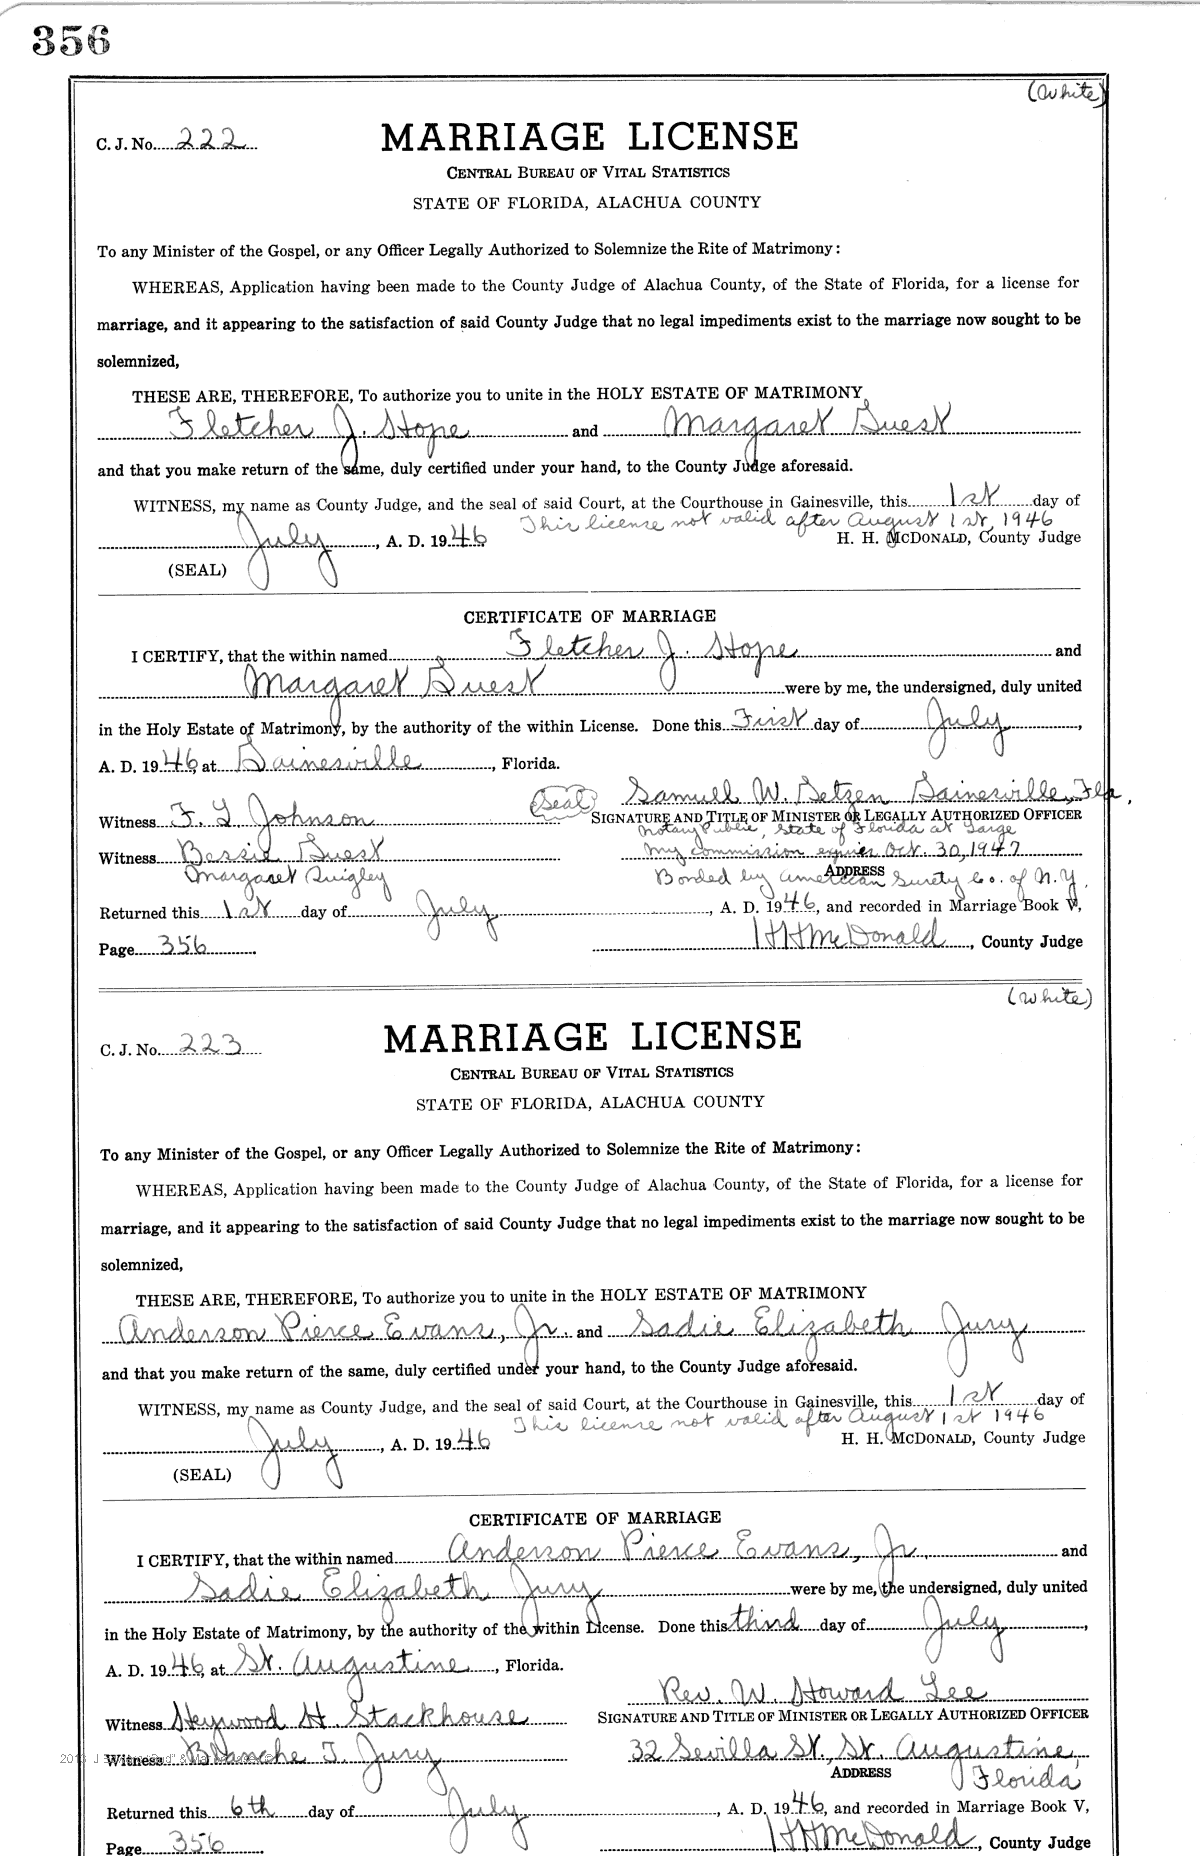 356
(White)
C. J. No. 222 MARRIAGE LICENSE
CENTRAL BUREAU OF VITAL STATISTICS
STATE OF FLORIDA, ALACHUA COUNTY
To any Minister of the Gospel, or any Officer Legally Authorized to Solemnize the Rite of Matrimony:
WHEREAS, Application having been made to the County Judge of Alachua County, of the State of Florida, for a license for
marriage, and it appearing to the satisfaction of said County Judge that no legal impediments exist to the marriage now sought to be
solemnized,
THESE ARE, THEREFORE, To authorize you to unite in the HOLY ESTATE OF MATRIMONY
Fletcher J. Hope and Margaret Guest
and that you make return of the same, duly certified under your hand, to the County Judge aforesaid.
WITNESS, my name as County Judge, and the seal of said Court, at the Courthouse in Gainesville, this 1st day of
This license not valid after August 1st, 1946
July, A. D. 1946 H. H. MCDONALD, County Judge
(SEAL)
CERTIFICATE OF MARRIAGE
I CERTIFY, that the within named Fletcher J. Hope and
Margaret Guest were by me, the undersigned, duly united
in the Holy Estate of Matrimony, by the authority of the within License. Done this First day of July,
A. D. 1946, at Gainesville, Florida.
(Seal) Samuel W. Getzen Gainesville, Fla.
Witness F. L Johnson SIGNATURE AND TITLE OF MINISTER OR LEGALLY AUTHORIZED OFFICER
Notary Public, State of Florida at Large
Witness Bessie Guest My commission expires Oct. 30, 1947
Margaret Quigley ADDRESS Bonded by American Surety Co. of N.Y.
Returned this 1st day of July, A. D. 1946, and recorded in Marriage Book V,
Page 356 H H McDonald, County Judge
(White)
C. J. No. 223 MARRIAGE LICENSE
CENTRAL BUREAU OF VITAL STATISTICS
STATE OF FLORIDA, ALACHUA COUNTY
To any Minister of the Gospel, or any Officer Legally Authorized to Solemnize the Rite of Matrimony:
WHEREAS, Application having been made to the County Judge of Alachua County, of the State of Florida, for a license for
marriage, and it appearing to the satisfaction of said County Judge that no legal impediments exist to the marriage now sought to be
solemnized,
THESE ARE, THEREFORE, To authorize you to unite in the HOLY ESTATE OF MATRIMONY
Anderson Pierce Evans, Jr. and Sadie Elizabeth Jury
and that you make return of the same, duly certified under your hand, to the County Judge aforesaid.
WITNESS, my name as County Judge, and the seal of said Court, at the Courthouse in Gainesville, this 1st day of
This license not valid after August 1st 1946
July, A. D. 1946 H. H. MCDONALD, County Judge
(SEAL)
CERTIFICATE OF MARRIAGE
I CERTIFY, that the within named Anderson Pierce Evans, Jr. and
Sadie Elizabeth Jury were by me, the undersigned, duly united
in the Holy Estate of Matrimony, by the authority of the within License. Done this third day of July,
A. D. 1946, at St. Augustine, Florida.
Rev. W. Howard Lee
Witness Heywood H Stackhouse SIGNATURE AND TITLE OF MINISTER OR LEGALLY AUTHORIZED OFFICER
Witness Blanche T. Jury 32 Sevilla St., St. Augustine,
ADDRESS Florida
Returned this 6th day of July, A. D. 1946, and recorded in Marriage Book V,
Page 356 H H McDonald, County Judge